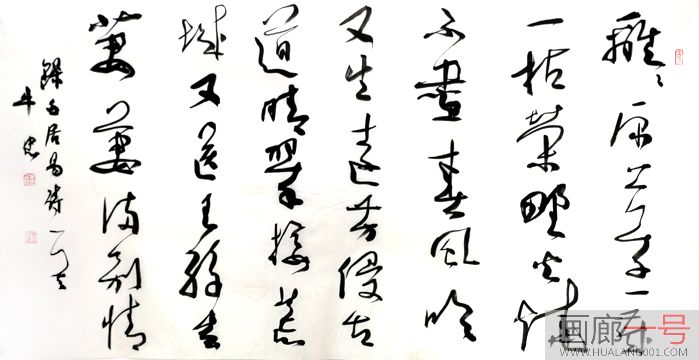 離々原上草一歲
一枯榮野火燒
不盡春風吹
又生遠芳侵古
道晴翠接荒
城又送王孫去
萋萋滿別情
錄白居易詩一首
牛忠
画廊一号
WWW.HUALANG001.COM